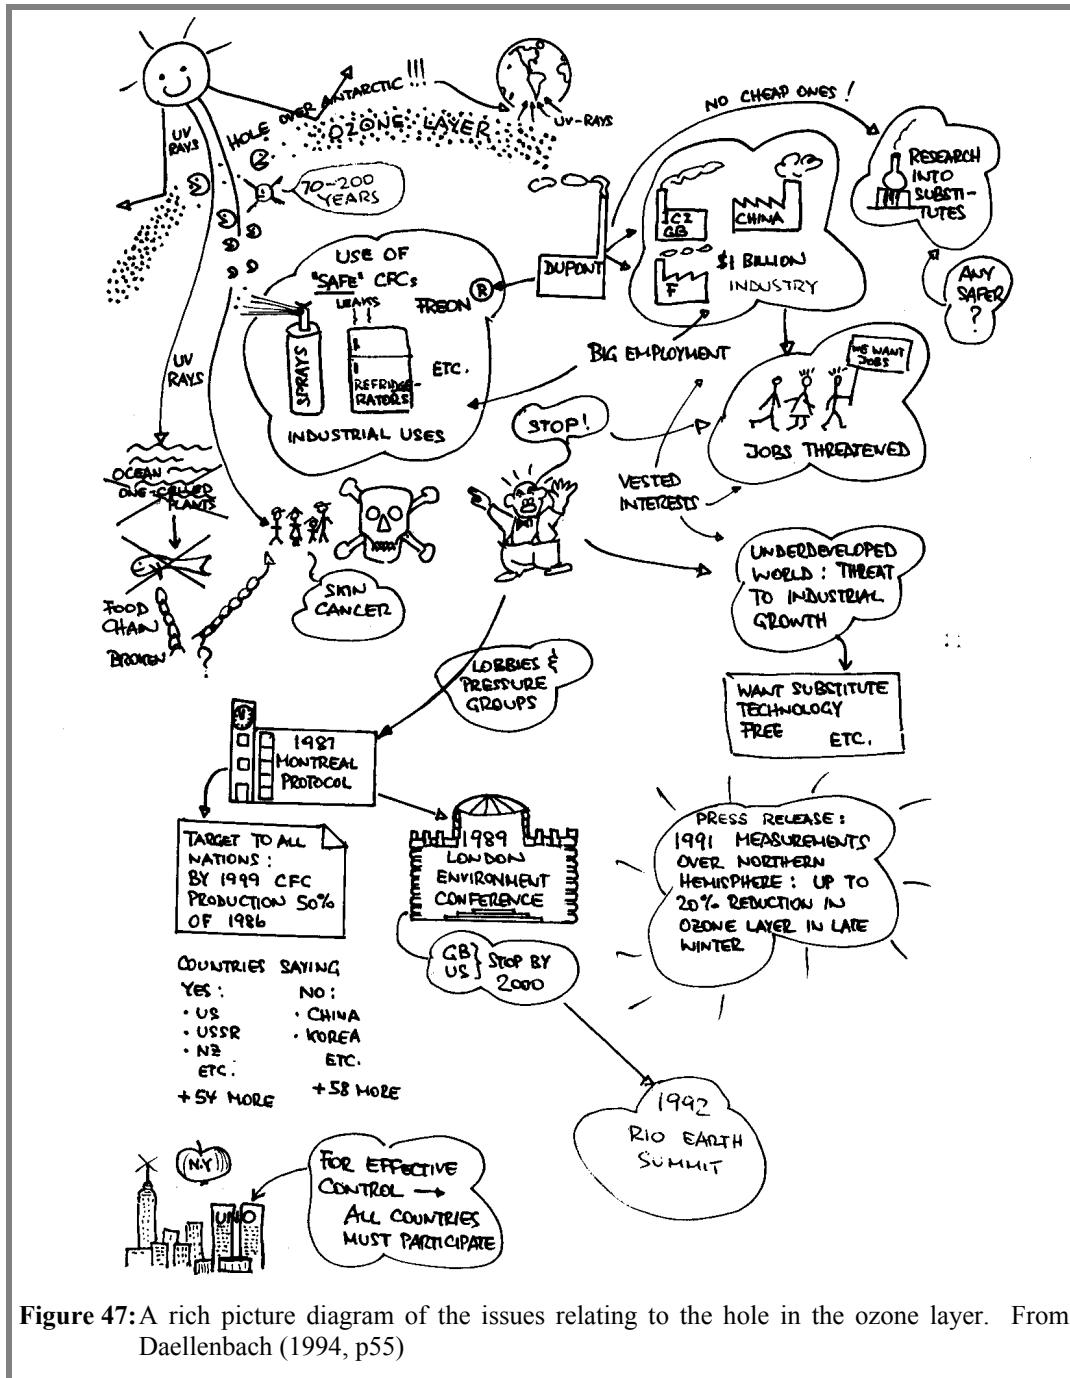 HOLE OVER ANTARCTIC !!!
OZONE LAYER
UV-RAYS
UV
RAYS
70-200
YEARS
NO CHEAP ONES!
RESEARCH
INTO
SUBSTI-
TUTES
ANY
SAFER
?
GB
CHINA
F
$1 BILLION
INDUSTRY
DUPONT
FREON ®
USE OF
"SAFE" CFCs
LEAKS
SPRAYS
REFRIDGE-
RATORS
ETC.
INDUSTRIAL USES
BIG EMPLOYMENT
WE WANT
JOBS
JOBS THREATENED
STOP!
VESTED
INTERESTS
UV
RAYS
OCEAN
ONE-CELLED
PLANTS
FOOD
CHAIN
BROKEN
?
SKIN
CANCER
UNDERDEVELOPED
WORLD: THREAT
TO INDUSTRIAL
GROWTH
WANT SUBSTITUTE
TECHNOLOGY
FREE
ETC.
LOBBIES &
PRESSURE
GROUPS
1987
MONTREAL
PROTOCOL
TARGET TO ALL
NATIONS:
BY 1999 CFC
PRODUCTION 50%
OF 1986
1989
LONDON
ENVIRONMENT
CONFERENCE
GB } STOP BY
US } 2000
PRESS RELEASE:
1991 MEASUREMENTS
OVER NORTHERN
HEMISPHERE: UP TO
20% REDUCTION IN
OZONE LAYER IN LATE
WINTER
COUNTRIES SAYING
YES:
· US
· USSR
· NZ
ETC.
+54 MORE
NO:
· CHINA
· KOREA
ETC.
+58 MORE
1992
RIO EARTH
SUMMIT
N.Y
UNO
FOR EFFECTIVE
CONTROL →
ALL COUNTRIES
MUST PARTICIPATE
Figure 47: A rich picture diagram of the issues relating to the hole in the ozone layer. From
Daellenbach (1994, p55)